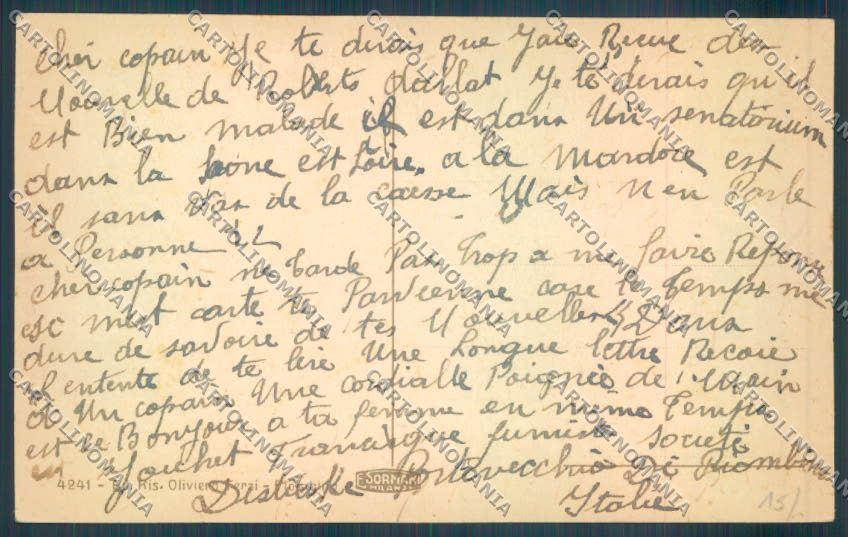 Cher copain Je te dirais que Jaie Recue des
Nouvelle de Roberts Je te dirais qu il
est Bien malade il est dans Un senatorium
dans la Saone est Loire. a la Mardore est
il sans vas de la caesse Mais N en Parle
a Personne
cher copain ne tarde Pas Trop a me faire Reponse
est mest carte te Parvienne case le Temps me
dure de savoire de tes Nouvelles Dans
el entente de te lere Une Longue lettre Recoie
d Un copain Une cordialle Poignée de Main
est le Bonjour a ta femme en même Temps
Jachet Francisque fumiste societé
4241 - Ris. Oliviero Terzi -
Portovecchio Di Piombino
Italie
15/-
F. SORMANI
MILANO
CARTOLINOMANIA